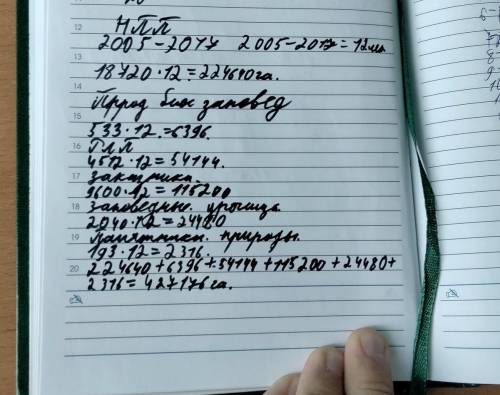 12
НПП
2005-2017 2005-2017=12
13
18720·12=224640га.
14
Природ биос заповед
15
533·12.=6396.
16
РЛП
4512·12=54144.
17
Заказники.
9600·12=115200
18
Заповедные. урочища
2040·12=24480
19
Памятники. природы.
193·12=2316.
20
224640+6396+54144+115200+24480+
2316=427176га.